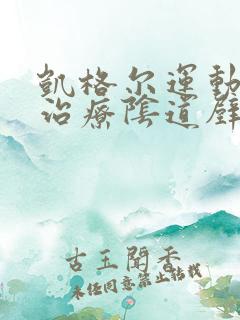 凱格尔運動
治療陰道壁
古玉聞香
未经同意禁止转载